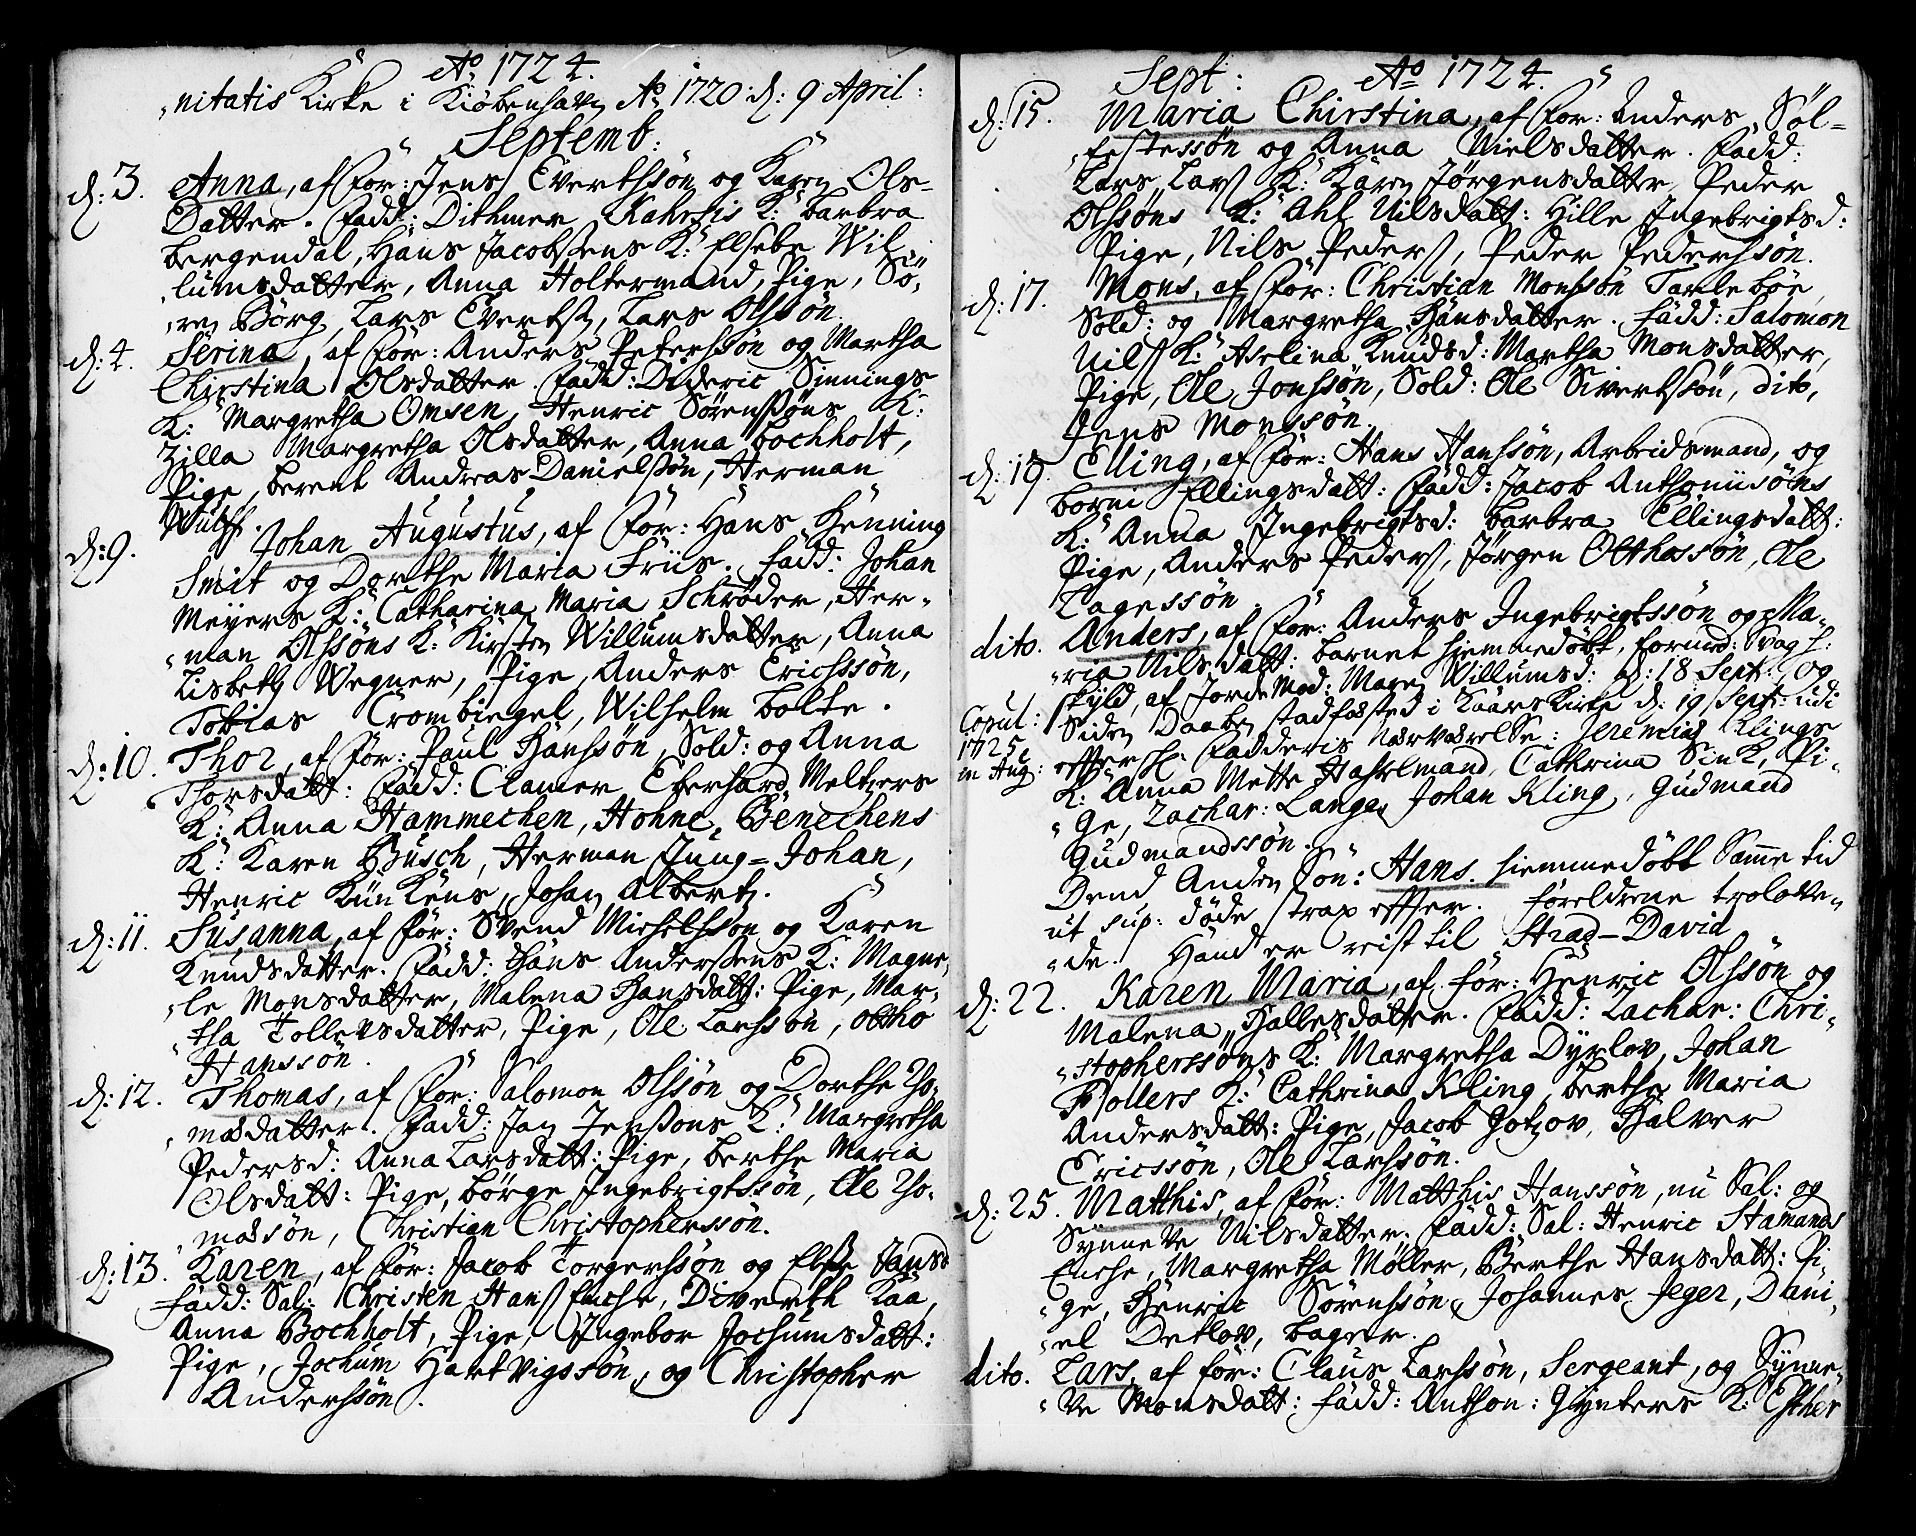 Aō 1724.
„nitatis Kirke i Kiøbenhafn Aō 1720. d: 9 April:
Septemb:
d: 3. Anna, af For: Jens Evertssøn og Karen Ols-
Datter. Fadd: Dithmer Kahrsis K: Barbra
Bergendal, Hans Jacobsens K: Elsebe Wil-
„lumsdatter, Anna Holtermand, Pige, Sö-
„ren Börg, Lars Evertss, Lars Olssøn.
d: 4. Serina, af For: Anders Peterssøn og Martha
Chirstina Olsdatter. Fadd: Dideric Sinnings
K: Margretha Omsen, Henric Sörenssøns K:
Zilla Margretha Olsdatter, Anna Bochholt,
Pige, Berent Andreas Danielssøn, Herman
Wulff.
d: 9. Johan Augustus, af For: Hans Henning
Smit og Dorthe Maria Friis. Fadd: Johan
Meyers K: Catharina Maria Schrøder, Her-
„man Olssøns K: Kirsten Willumsdatter, Anna
Lisbeth Wegner, Pige, Anders Ericssøn,
Tobias Crombiegel, Wilhelm Bolte.
d: 10. Thor, af For: Paul Hanssøn, Sold: og Anna
Thorsdatt: Fadd: Clamer Eberhard Meltzers
K: Anna Hammechen, Hohne Benechens
K: Karen Busch, Herman Jung-Johan,
Henric Kün Kens, Johan Albert.
d: 11. Susanna, af For: Svend Michelssøn og Karen
Knudsdatter. Fadd: Hans Anderssens K: Magne-
„le Monsdatter, Malena Hansdatt: Pige, Mar-
„tha Tollevsdatter, Pige, Ole Larssøn, Ottho
Hanssøn.
d: 12. Thomas, af For: Salomon Olssøn og Dorthe Tho-
„masdatter. Fadd: Jan Jenssøns K: Margretha
Pedersd: Anna Larsdatt: Pige, Berthe Maria
Olsdatt: Pige, Börge Ingebrigtssøn, Ole Tho-
„massøn, Christian Christopherssøn.
d: 13. Karen, af For: Jacob Torgerssøn og Else Jansd
Fadd: Sal: Christen Hans Enche, Diverth Kaa,
Anna Bochholt, Pige, Ingebor Jochumsdatt:
Pige, Jochum Hartvigssøn, og Christopher
Anderssøn.
Sept: Aō 1724.
d: 15. Maria Chirstina, af For: Anders Söl-
„festessøn og Anna Nielsdatter. Fadd:
Lars Lars K: Karen Jørgensdatter, Peder
Olssøns K: Ahl Nilsdatt: Hille Ingebrigtsd:
Pige, Nils Peders, Peder Pederssøn.
d: 17. Mons, af For: Christian Monssøn Tarlebøe,
Sold: og Margretha Hansdatter. Fadd: Salomon
Nils K: Aselina Knudsd: Martha Monsdatter,
Pige, Ole Jonssøn, Sold: Ole Sivertssøn, dito,
Jens Monssøn.
d: 19. Elling, af For: Hans Hanssøn, Arbeidsmand, og
Borni Ellingsdatt: Fadd: Jacob Anthoniisøns
K: Anna Ingebrigtsd: Barbra Ellingsdatt:
Pige, Anders Peders, Jørgen Olthassøn, Ole
Tagessøn.
dito. Anders, af For: Anders Ingebrigtssøn og Ma-
„ria Nilsdatt: Barnet hiemmedøbt, formed: Svagh:
skyld, af JordeMod: Maren Willumsd: d: 18 Sept: og
Copul: 1725 in Aug: Siden Daaben stadfæsted i Kaars Kirke d: 19 Sept: udi
efftersk: Fadderis Nærværelse: Jeremias Klings
K: Anna Mette Hasselmand, Cathrina Sink, Pi-
„ge, Zachar: Lange, Johan Kling, Gudmand
Gudmandssøn.
Dend Anden Søn: Hans. hiemmedøbt Samme tid
ut sup: døde strax efter. Foreldrene trolove-
„de. Hand er reist til Strad-David
d: 22. Karen Maria, af For: Henric Olssøn og
Malena Hallesdatter. Fadd: Zachar: Chri-
„stopherssøns K: Margretha Dyrlov, Johan
Mollers K: Cathrina Kling, Berthe Maria
Andersdatt: Pige, Jacob Gotzov, Halver
Ericssøn, Ole Larssøn.
d: 25. Matthis, af For: Matthis Hanssøn, nu Sal: og
Synneve Nilsdatter. Fadd: Sal: Henric Stamands
Enche, Margretha Møller, Berthe Hansdatt: Pi-
„ge, Henric Sörenssøn, Johannes Jeger, Dani-
„el Detlov, Bager.
dito. Lars, af For: Claus Larssøn, Sergeant, og Synne-
„ve Monsdatt: Fadd: Anthon: Gynters K: Esther